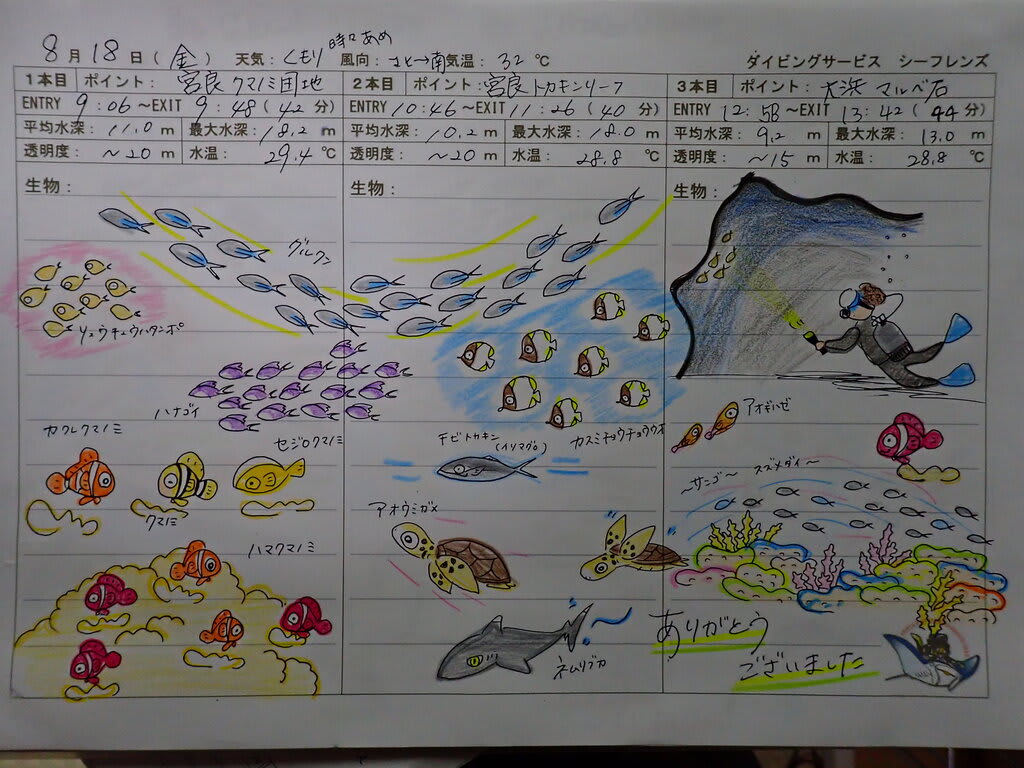 8月18日(金) 天気：くもり時々あめ 風向：北→南 気温：32℃ ダイビングサービス シーフレンズ
1本目 ポイント：宮良クマノミ団地
ENTRY 9:06～EXIT 9:48(42分)
平均水深：11.0m 最大水深：18.2m
透明度：～20m 水温：29.4℃
生物：
グルクン
リュウキュウハタンポ
ハナゴイ
カクレクマノミ
セジロクマノミ
クマノミ
ハマクマノミ
2本目 ポイント：宮良トカキンリーフ
ENTRY 10:46～EXIT 11:26(40分)
平均水深：10.2m 最大水深：18.0m
透明度：～20m 水温：28.8℃
生物：
カスミチョウチョウウオ
チビトカキン
(イソマグロ)
アオウミガメ
ネムリブカ
3本目 ポイント：大浜マルベ石
ENTRY 12:58～EXIT 13:42(44分)
平均水深：9.2m 最大水深：13.0m
透明度：～15m 水温：28.8℃
生物：
アオギハゼ
～サンゴ～ スズメダイ～
ありがとう
ございました